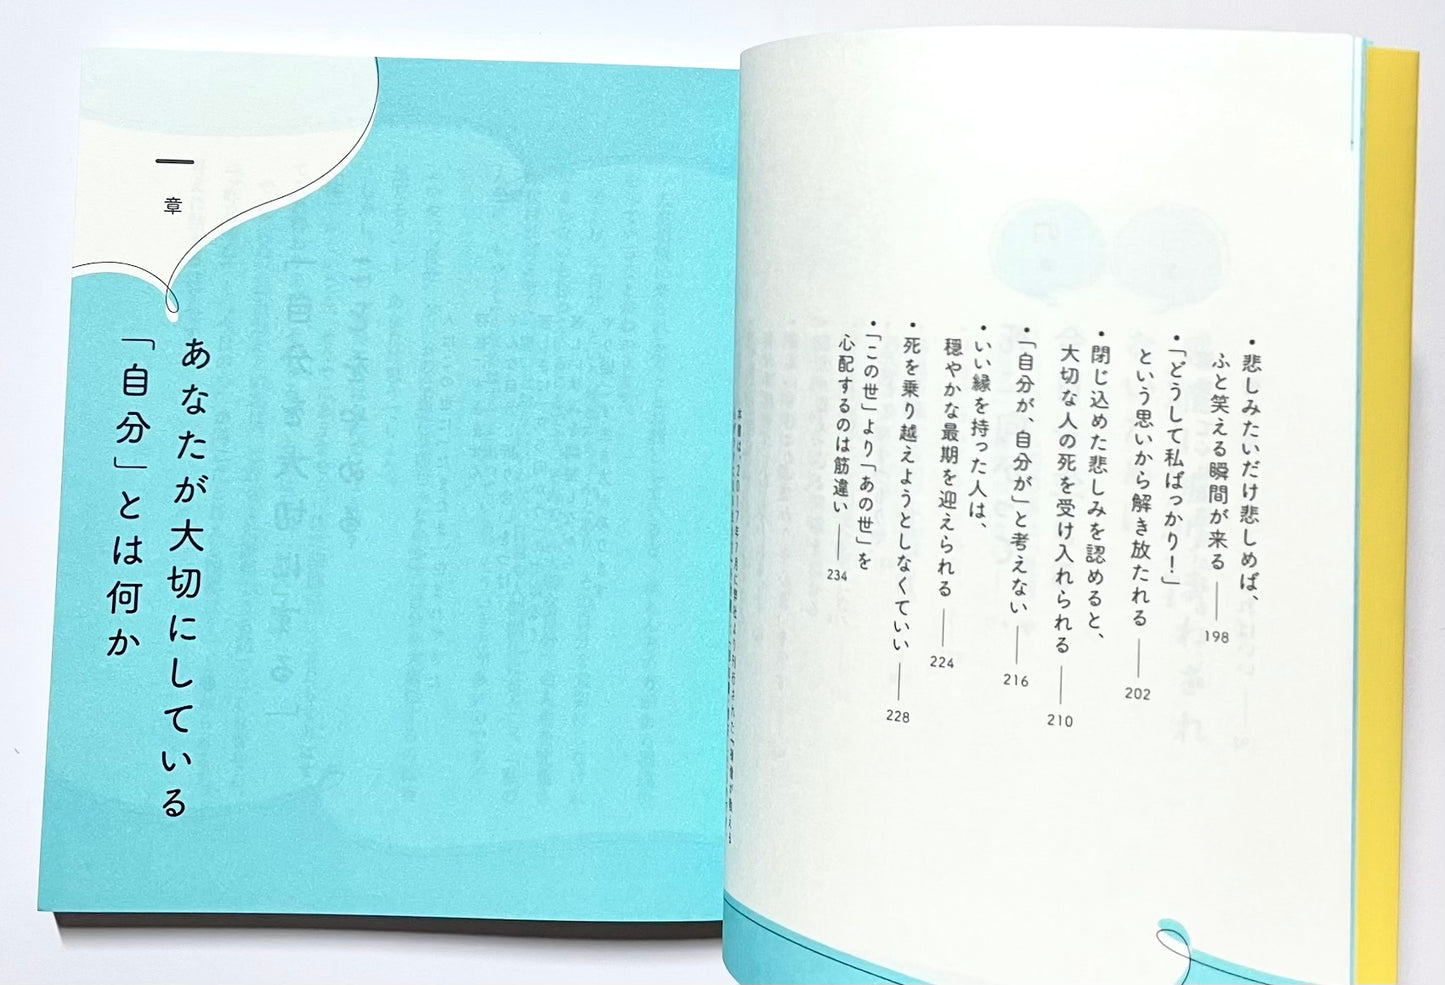 ・悲しみたいだけ悲しめば、
ふと笑える瞬間が来る ── 198
・「どうして私ばっかり！」
という思いから解き放たれる ── 202
・閉じ込めた悲しみを認めると、
大切な人の死を受け入れられる ── 210
・「自分が、自分が」と考えない ── 216
・いい縁を持った人は、
穏やかな最期を迎えられる ── 224
・死を乗り越えようとしなくていい ── 228
・「この世」より「あの世」を
心配するのは筋違い ── 234
一章
あなたが大切にしている
「自分」とは何か